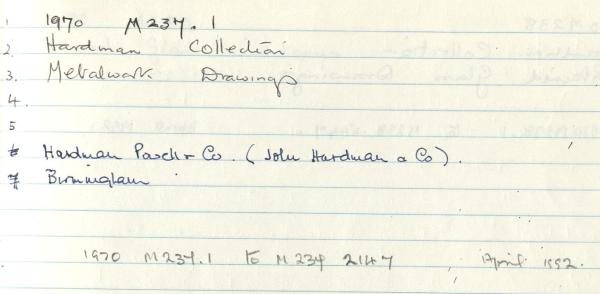 1 1970 M237.1
2. Hardman Collection
3. Metalwork Drawings
4.
5
6 Hardman Powell & Co. (John Hardman & Co).
7 Birmingham
1970 M237.1 to M237 2147 April 1992.